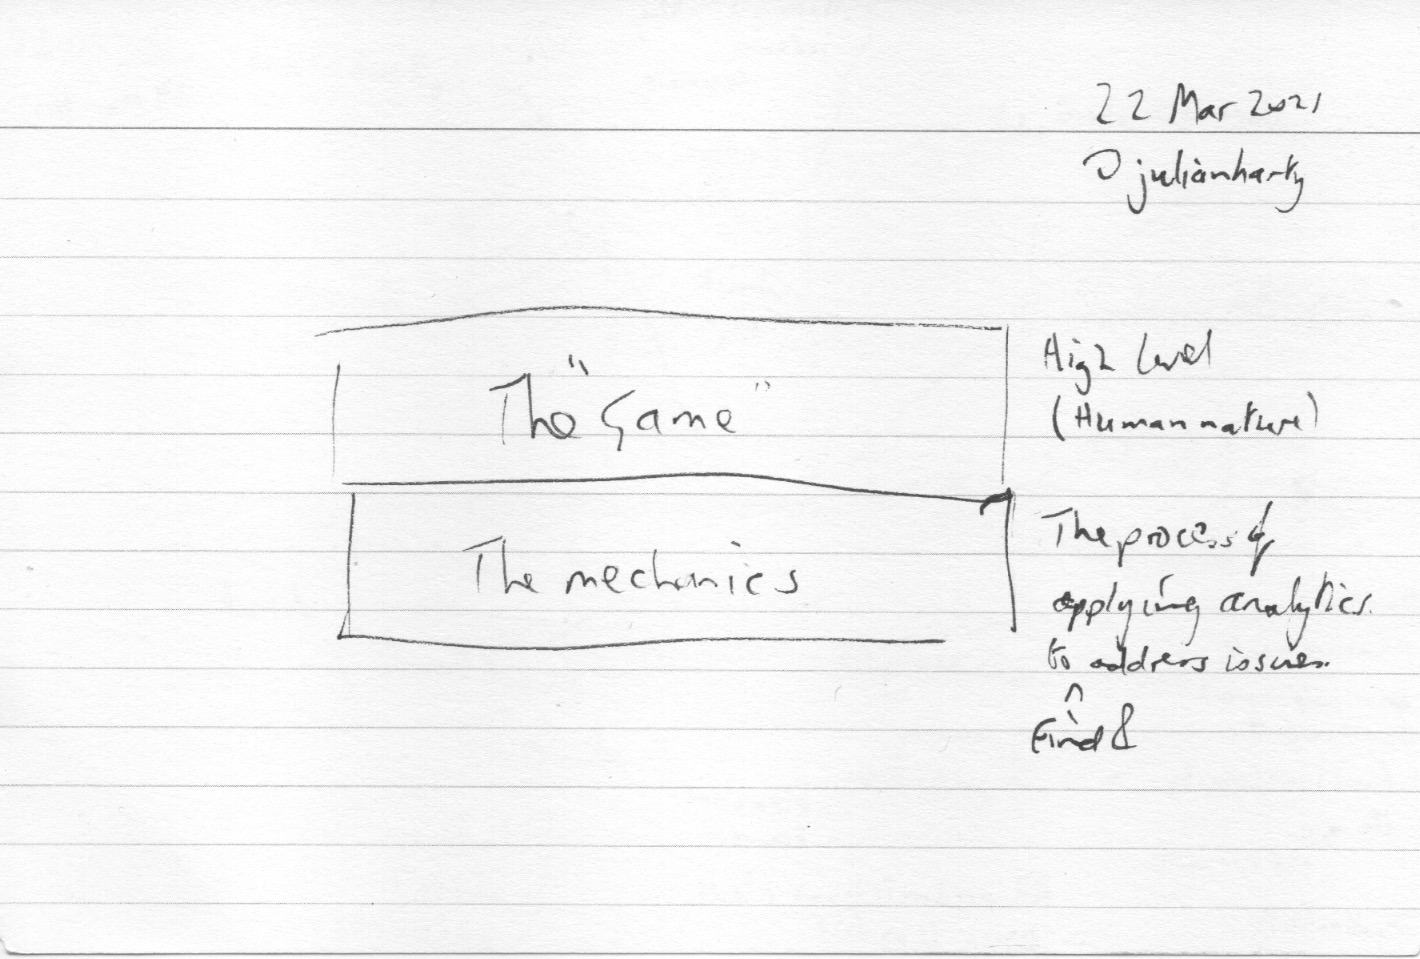 22 Mar 2021
@julianharty
The "Game"
High level
(Human nature)
The mechanics
The process of
applying analytics
to address issues.
^
Find &